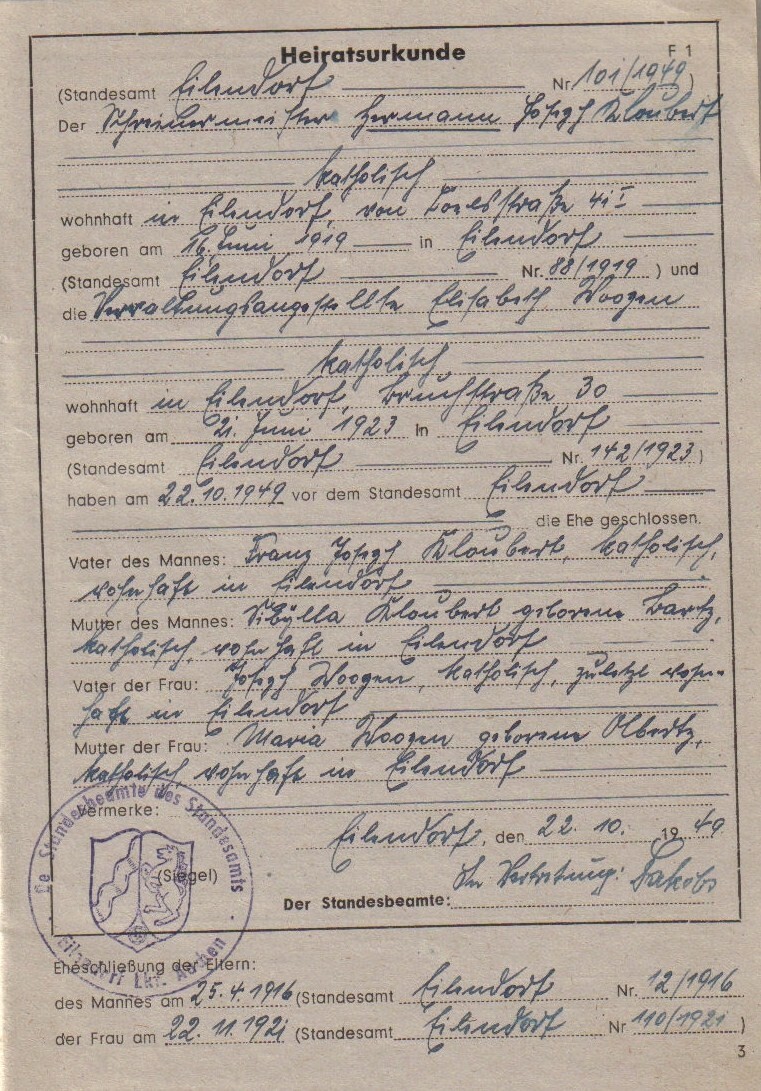 Heiratsurkunde
F 1
(Standesamt Eilendorf Nr. 101/1949)
Der Schreinermeister Hermann Josef Kloubert
katholisch
wohnhaft in Eilendorf, von straße 41 I
geboren am 16. Juni 1919 in Eilendorf
(Standesamt Eilendorf Nr. 88/1919) und
die Verwaltungsangestellte Elisabeth Woogen
katholisch
wohnhaft in Eilendorf, Bruchstraße 30
geboren am 21. Juni 1923 in Eilendorf
(Standesamt Eilendorf Nr. 142/1923)
haben am 22.10.1949 vor dem Standesamt Eilendorf
die Ehe geschlossen.
Vater des Mannes: Franz Josef Kloubert, katholisch,
wohnhaft in Eilendorf
Mutter des Mannes: Sibylla Kloubert geborene Bartz,
katholisch, wohnhaft in Eilendorf
Vater der Frau: Josef Woogen, katholisch, zuletzt wohn-
haft in Eilendorf
Mutter der Frau: Maria Woogen geborene Olbertz,
katholisch, wohnhaft in Eilendorf
Vermerke:
Eilendorf, den 22. 10. 1949
(Siegel)
In Vertretung: Jakobs
Der Standesbeamte:
De Standesbeamte des Standesamts
Eilendorf Lkr. Aachen
Eheschließung der Eltern:
des Mannes am 25.4.1916 (Standesamt Eilendorf Nr. 12/1916
der Frau am 22.11.1921 (Standesamt Eilendorf Nr 110/1921)
3